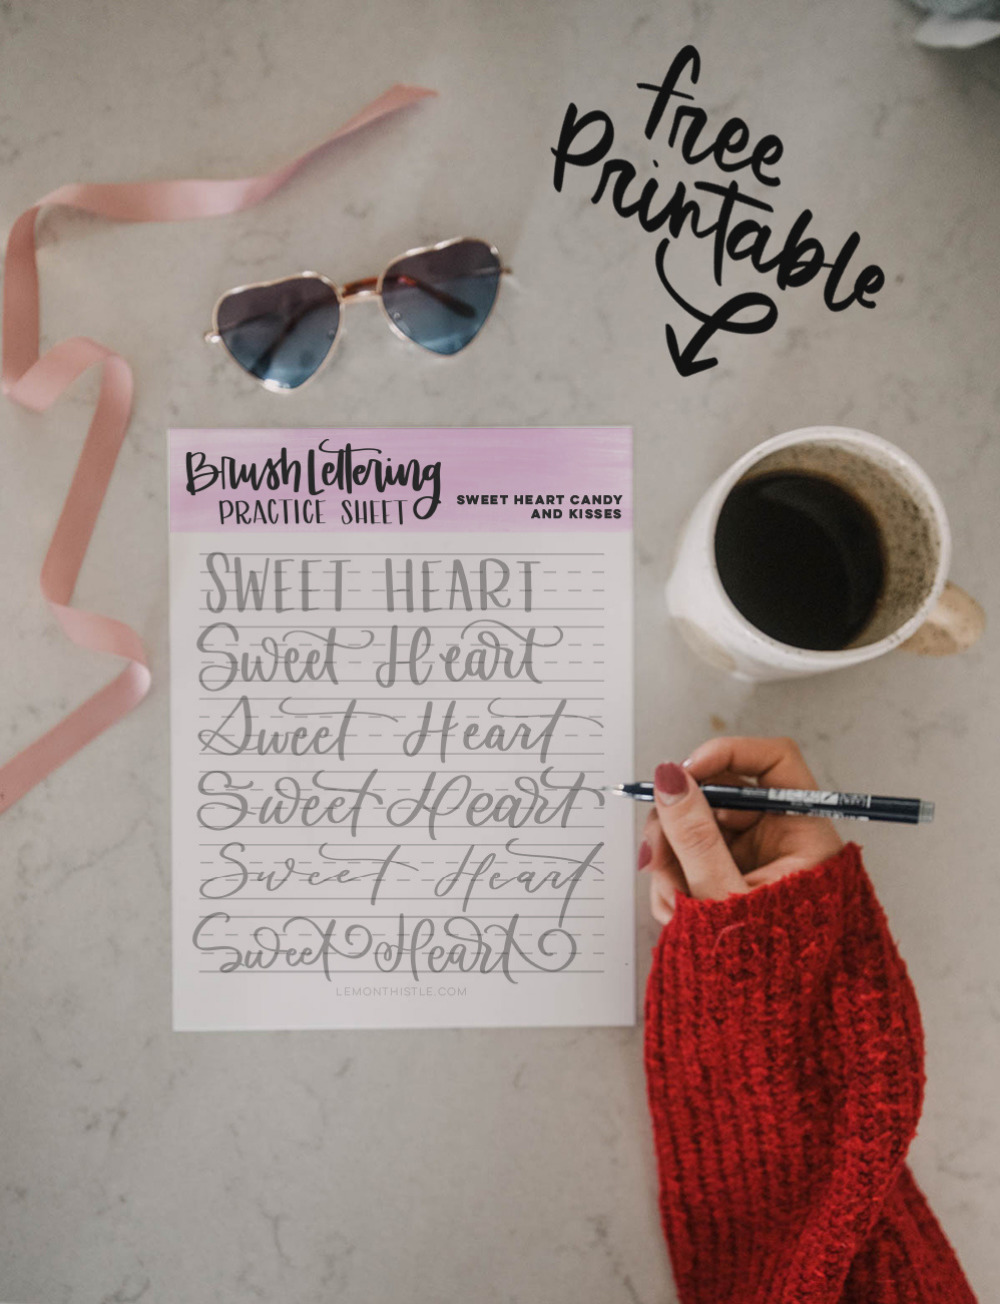 free
Printable
Brush Lettering
PRACTICE SHEET
SWEET HEART CANDY
AND KISSES
SWEET HEART
Sweet Heart
Sweet Heart
Sweet Heart
Sweet Heart
Sweet Heart
LEMONTHISTLE.COM